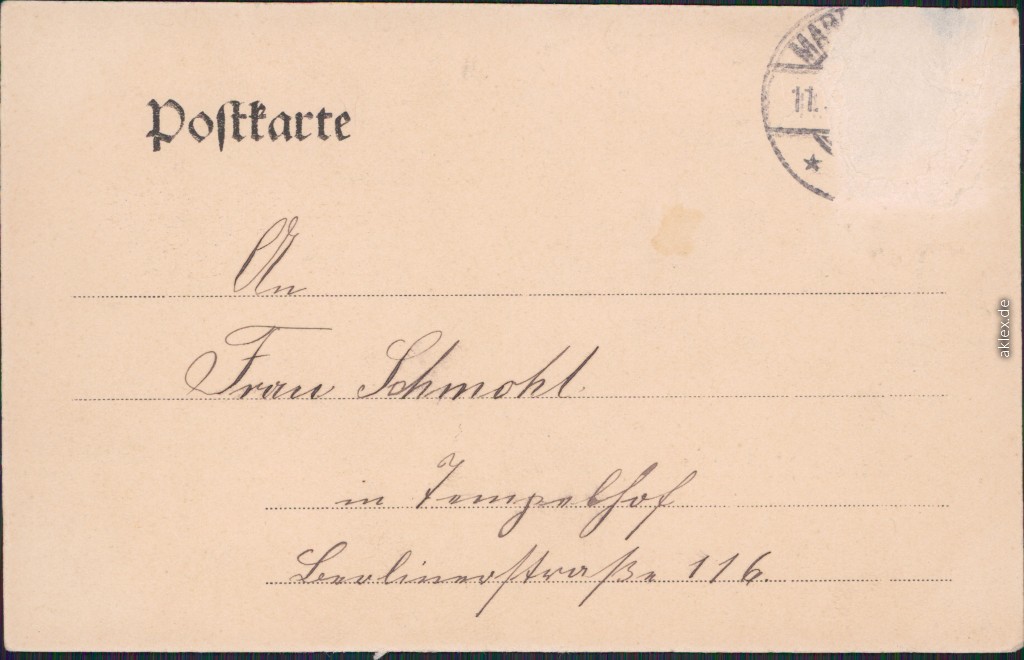 Postkarte
MAR
11.
An
Frau Schmohl.
in Tempelhof
Berlinerstraße 116.
aklex.de